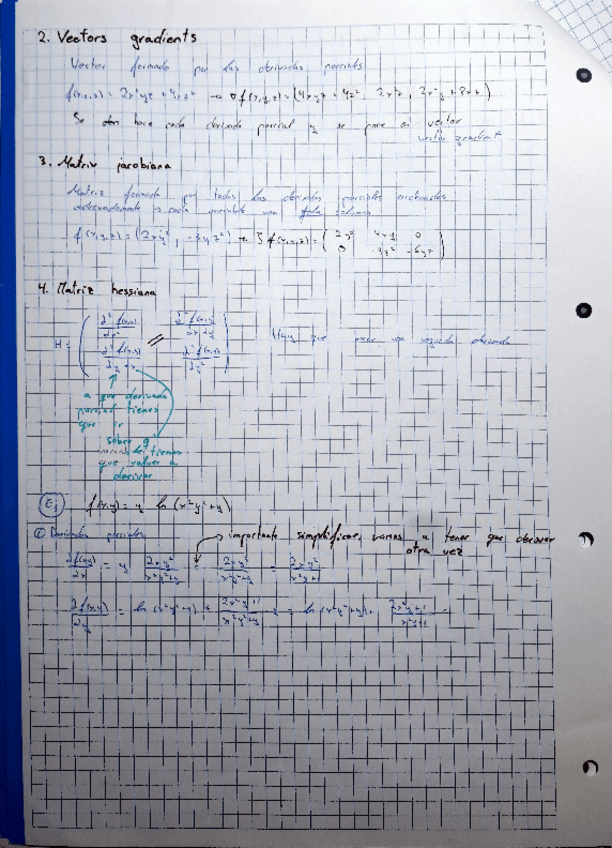 2. Vectors gradients
Vector formado por las derivadas parciales
f(x,y,z) = 2x²yz + 4xz² → ∇f(x,y,z) = (4xyz + 4z², 2x²z, 2x²y + 8xz)
Se hace cada derivada parcial y se pone en vector
vector gradient
3. Matriu jacobiana
Matriz formada por todas las derivadas parciales ordenadas
adecuadamente → cada variable una columna
f(x,y,z) = (2xy², -3yz²) → J f(x,y,z) = ( 2y² 4xy 0
0 -3z² -6yz )
4. Matriz hessiana
H = ( ∂²f(x,y)/∂x² ∂²f(x,y)/∂x∂y
∂²f(x,y)/∂y∂x ∂²f(x,y)/∂y² ) Hay que hacer una segunda derivada
a que derivada
parcial tienes
que ir
sobre q'
tienes
que volver a
derivar
Ej f(x,y) = y ln (x²y²+y)
① Derivadas parciales → importante simplificar, vamos a tener que derivar
otra vez
∂f(x,y)/∂x = y 2xy²/(x²y²+y) = 2xy³/(x²y²+y) = 2xy²/(x²y+1)
∂f(x,y)/∂y = ln (x²y²+y) + (2x²y+1)/(x²y²+y) y = ln (x²y²+y) + (2x²y+1)/(x²y+1)